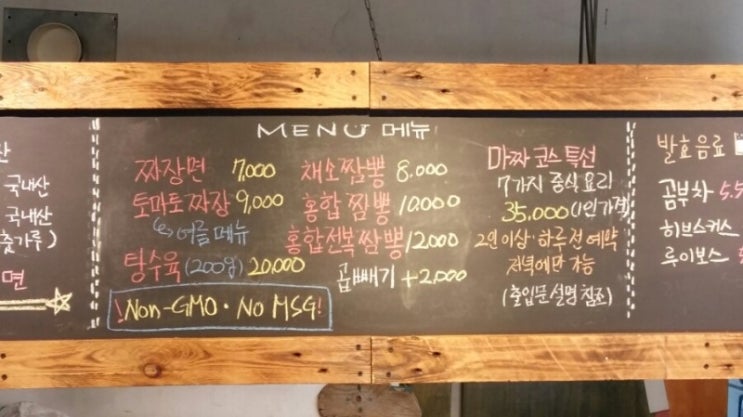 국내산
국내산
춧가루)
면
MENU 메뉴
짜장면 7,000
토마토짜장 9,000
여름메뉴
탕수육 (200g) 20,000
!Non-GMO · No MSG!
채소짬뽕 8,000
홍합짬뽕 10,000
홍합전복짬뽕 12,000
곱빼기 +2,000
마짜코스특선
7가지 중식요리
35,000 (1인가격)
2인이상·하루전예약
저녁에만 가능
(출입문설명참조)
발효음료
곰부차 5.5
히브스커스
루이보스